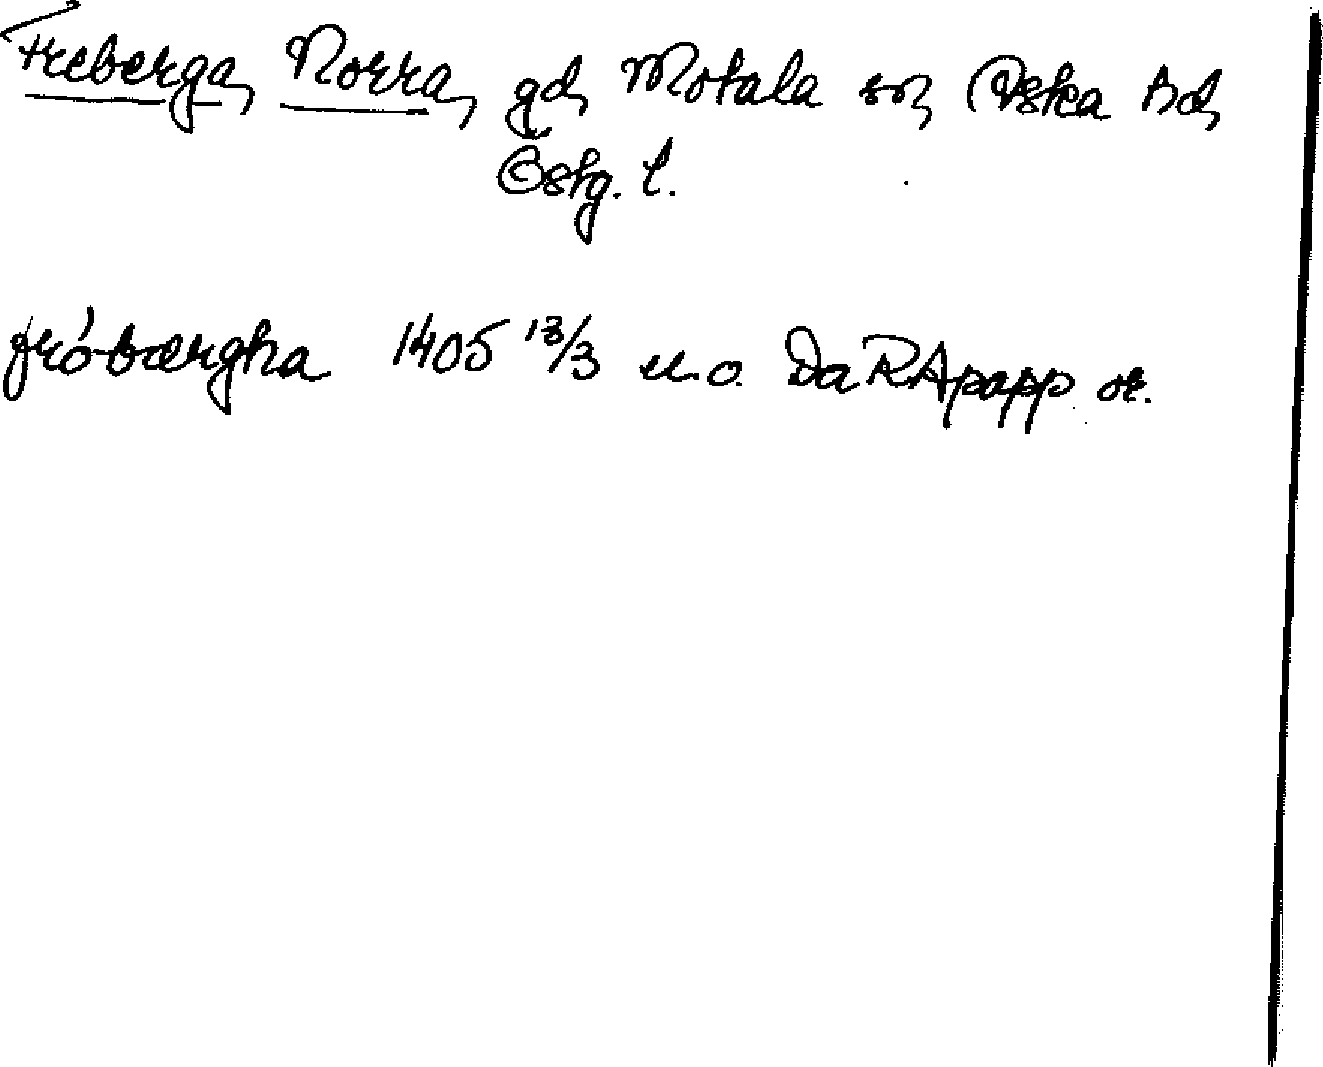 Freberga, Norra, gd, Motala sn, Aska hd,
Östg. l.
fróbærgha 1405 13/3 u.o. Da RApapp or.